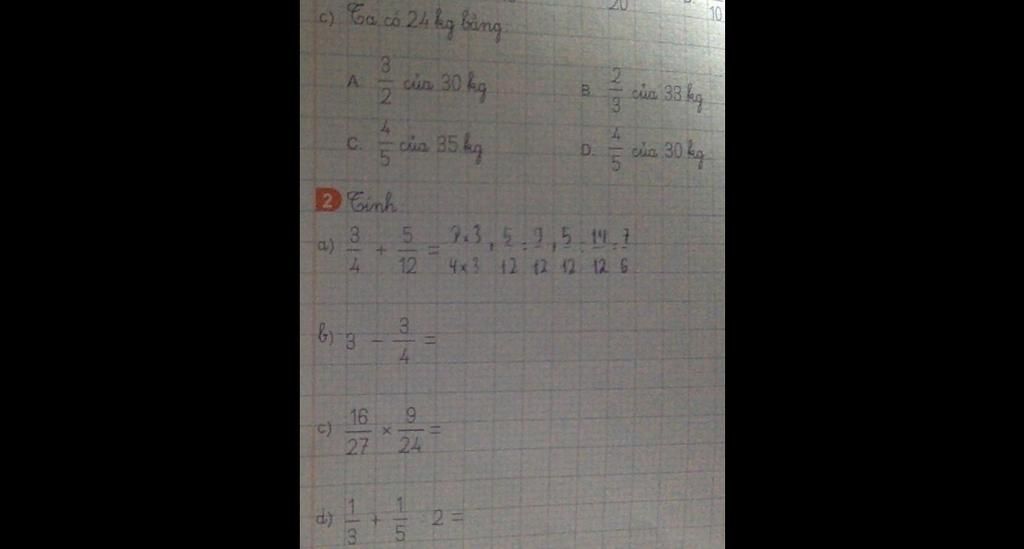 20
10
c) Ta có 24 kg bằng:
A. 3/2 của 30 kg B. 2/3 của 33 kg
C. 4/5 của 35 kg D. 4/5 của 30 kg
2 Tính
a) 3/4 + 5/12 = 3×3/4×3 + 5/12 = 9/12 + 5/12 = 14/12 = 7/6
b) 3 - 3/4 =
c) 16/27 × 9/24 =
d) 1/3 + 1/5 2 =